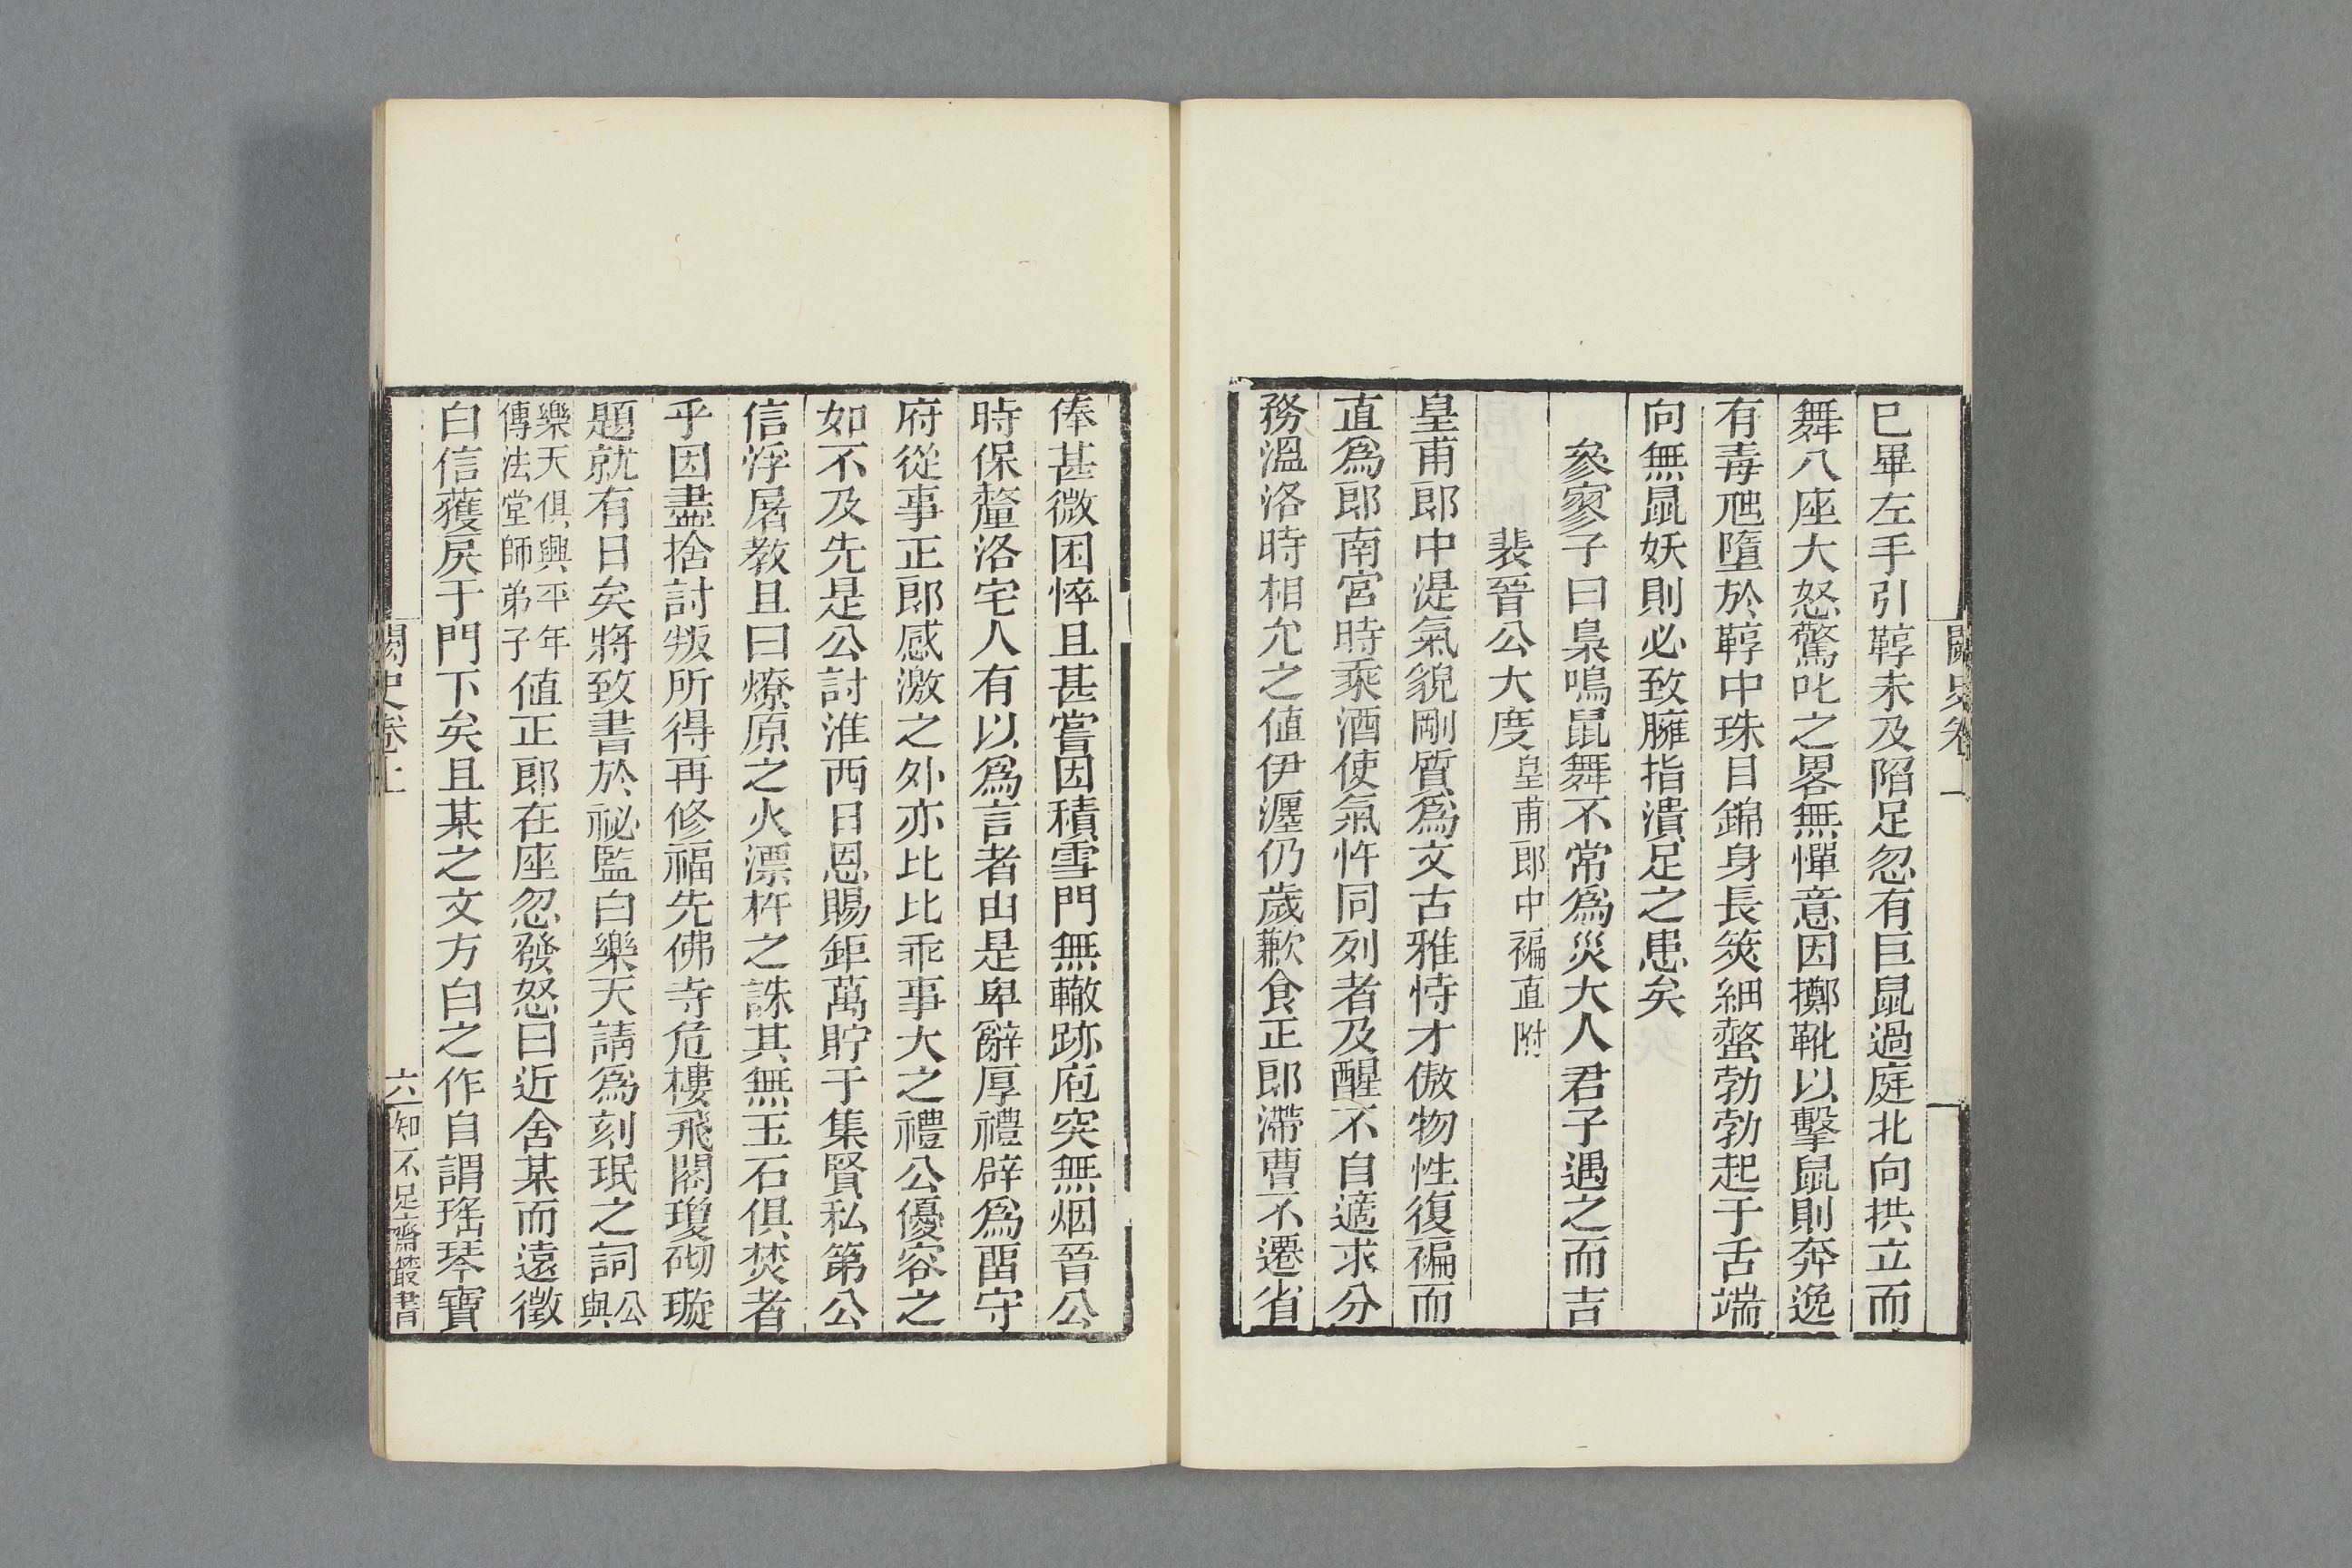 闕史卷
已畢左手引鞟未及陷足忽有巨鼠過庭北向拱立而
舞八座大怒驚叱之畧無憚意因擲靴以擊鼠則奔逸
有毒虺墮於鞟中珠目錦身長筴細螫勃勃起于舌端
向無鼠妖則必致臃指潰足之患矣
參寥子曰梟鳴鼠舞不常爲災大人君子遇之而吉
裴晉公大度皇甫郎中褊直附
皇甫郎中湜氣貌剛質爲文古雅恃才傲物性復褊而
直爲郎南宮時乘酒使氣忤同列者及醒不自適求分
務溫洛時相允之値伊瀍仍歲歉食正郎滯曹不遷省
俸甚微困悴且甚嘗因積雪門無轍跡庖突無烟晉公
時保釐洛宅人有以爲言者由是卑辭厚禮辟爲畱守
府從事正郎感激之外亦比比乖事大之禮公優容之
如不及先是公討淮西日恩賜鉅萬貯于集賢私第公
信浮屠教且曰燎原之火漂杵之誅其無玉石俱焚者
乎因盡捨討叛所得再修福先佛寺危樓飛閣瓊砌璇
題就有日矣將致書於祕監白樂天請爲刻珉之詞公與
樂天俱興平年傳法堂師弟子値正郎在座忽發怒曰近舍某而遠徵
白信獲戾于門下矣且某之文方白之作自謂瑤琴寶
闕史卷上
六
知不足齋叢書